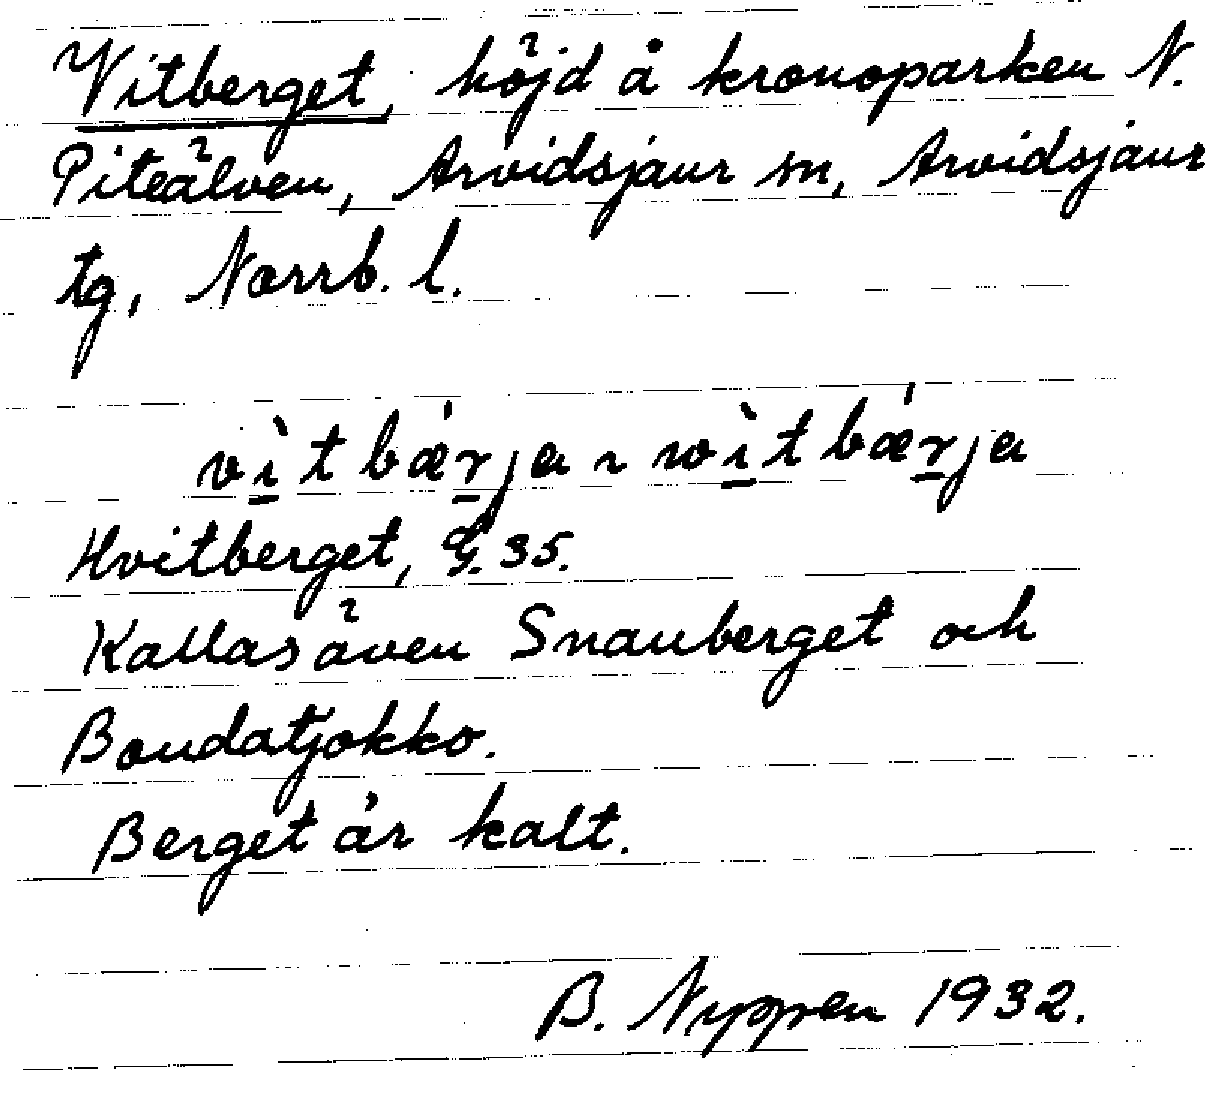 Vitberget, höjd å kronoparken N.
Piteälven, Arvidsjaur sn, Arvidsjaur
tg, Norrb. l.
vìtbǽrja ~ wìtbǽrja
Hvitberget, G. 35.
Kallas även Snauberget och
Boudatjokko.
Berget är kalt.
B. Nyppen 1932.